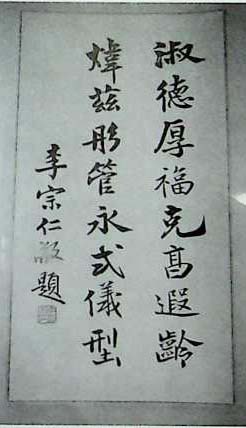 淑德厚福克高遐齡
煒茲彤管永式儀型
李宗仁敬題